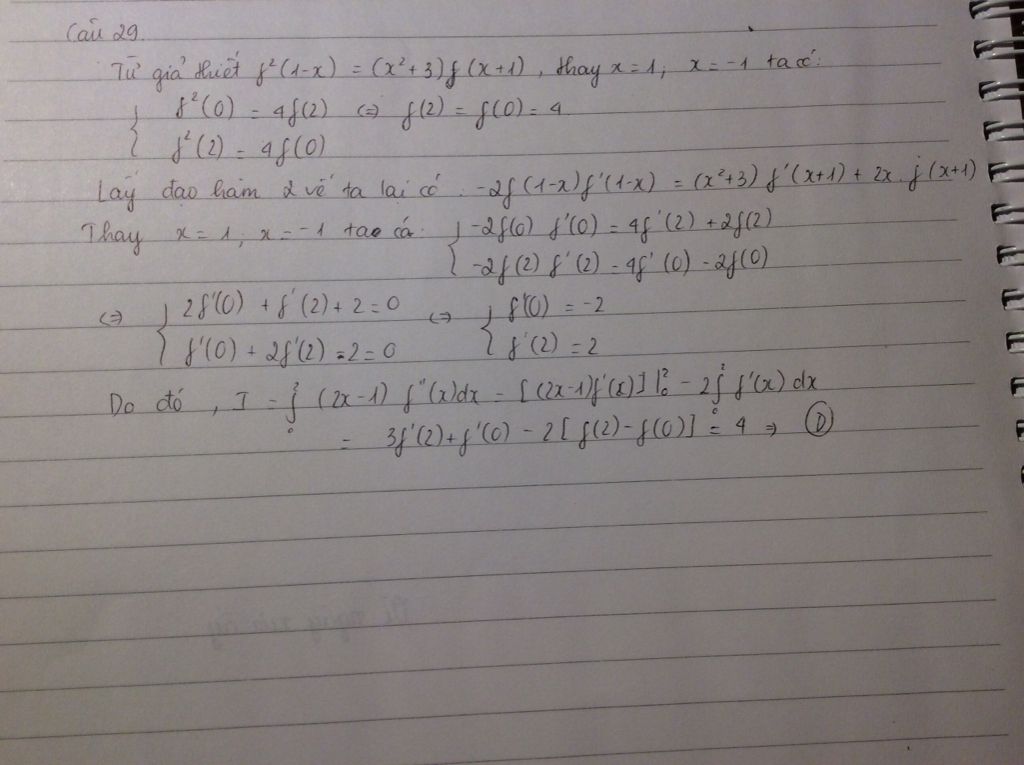 Câu 29.
Từ giả thiết f²(1-x) = (x²+3)f(x+1), thay x=1; x=-1 ta có:
{ f²(0) = 4f(2) ⇔ f(2) = f(0) = 4
{ f²(2) = 4f(0)
Lấy đạo hàm 2 vế ta lại có: -2f(1-x)f'(1-x) = (x²+3) f'(x+1) + 2x.f(x+1)
Thay x=1; x=-1 ta có: { -2f(0) f'(0) = 4f'(2) + 2f(2)
{ -2f(2) f'(2) = 4f'(0) - 2f(0)
⇔ { 2f'(0) + f'(2) + 2 = 0 ⇔ { f'(0) = -2
{ f'(0) + 2f'(2) - 2 = 0 { f'(2) = 2
Do đó, I = ∫₀² (2x-1) f''(x)dx = [(2x-1)f'(x)]|₀² - 2∫₀² f'(x) dx
= 3f'(2) + f'(0) - 2[f(2) - f(0)] = 4 ⇒ Ⓓ